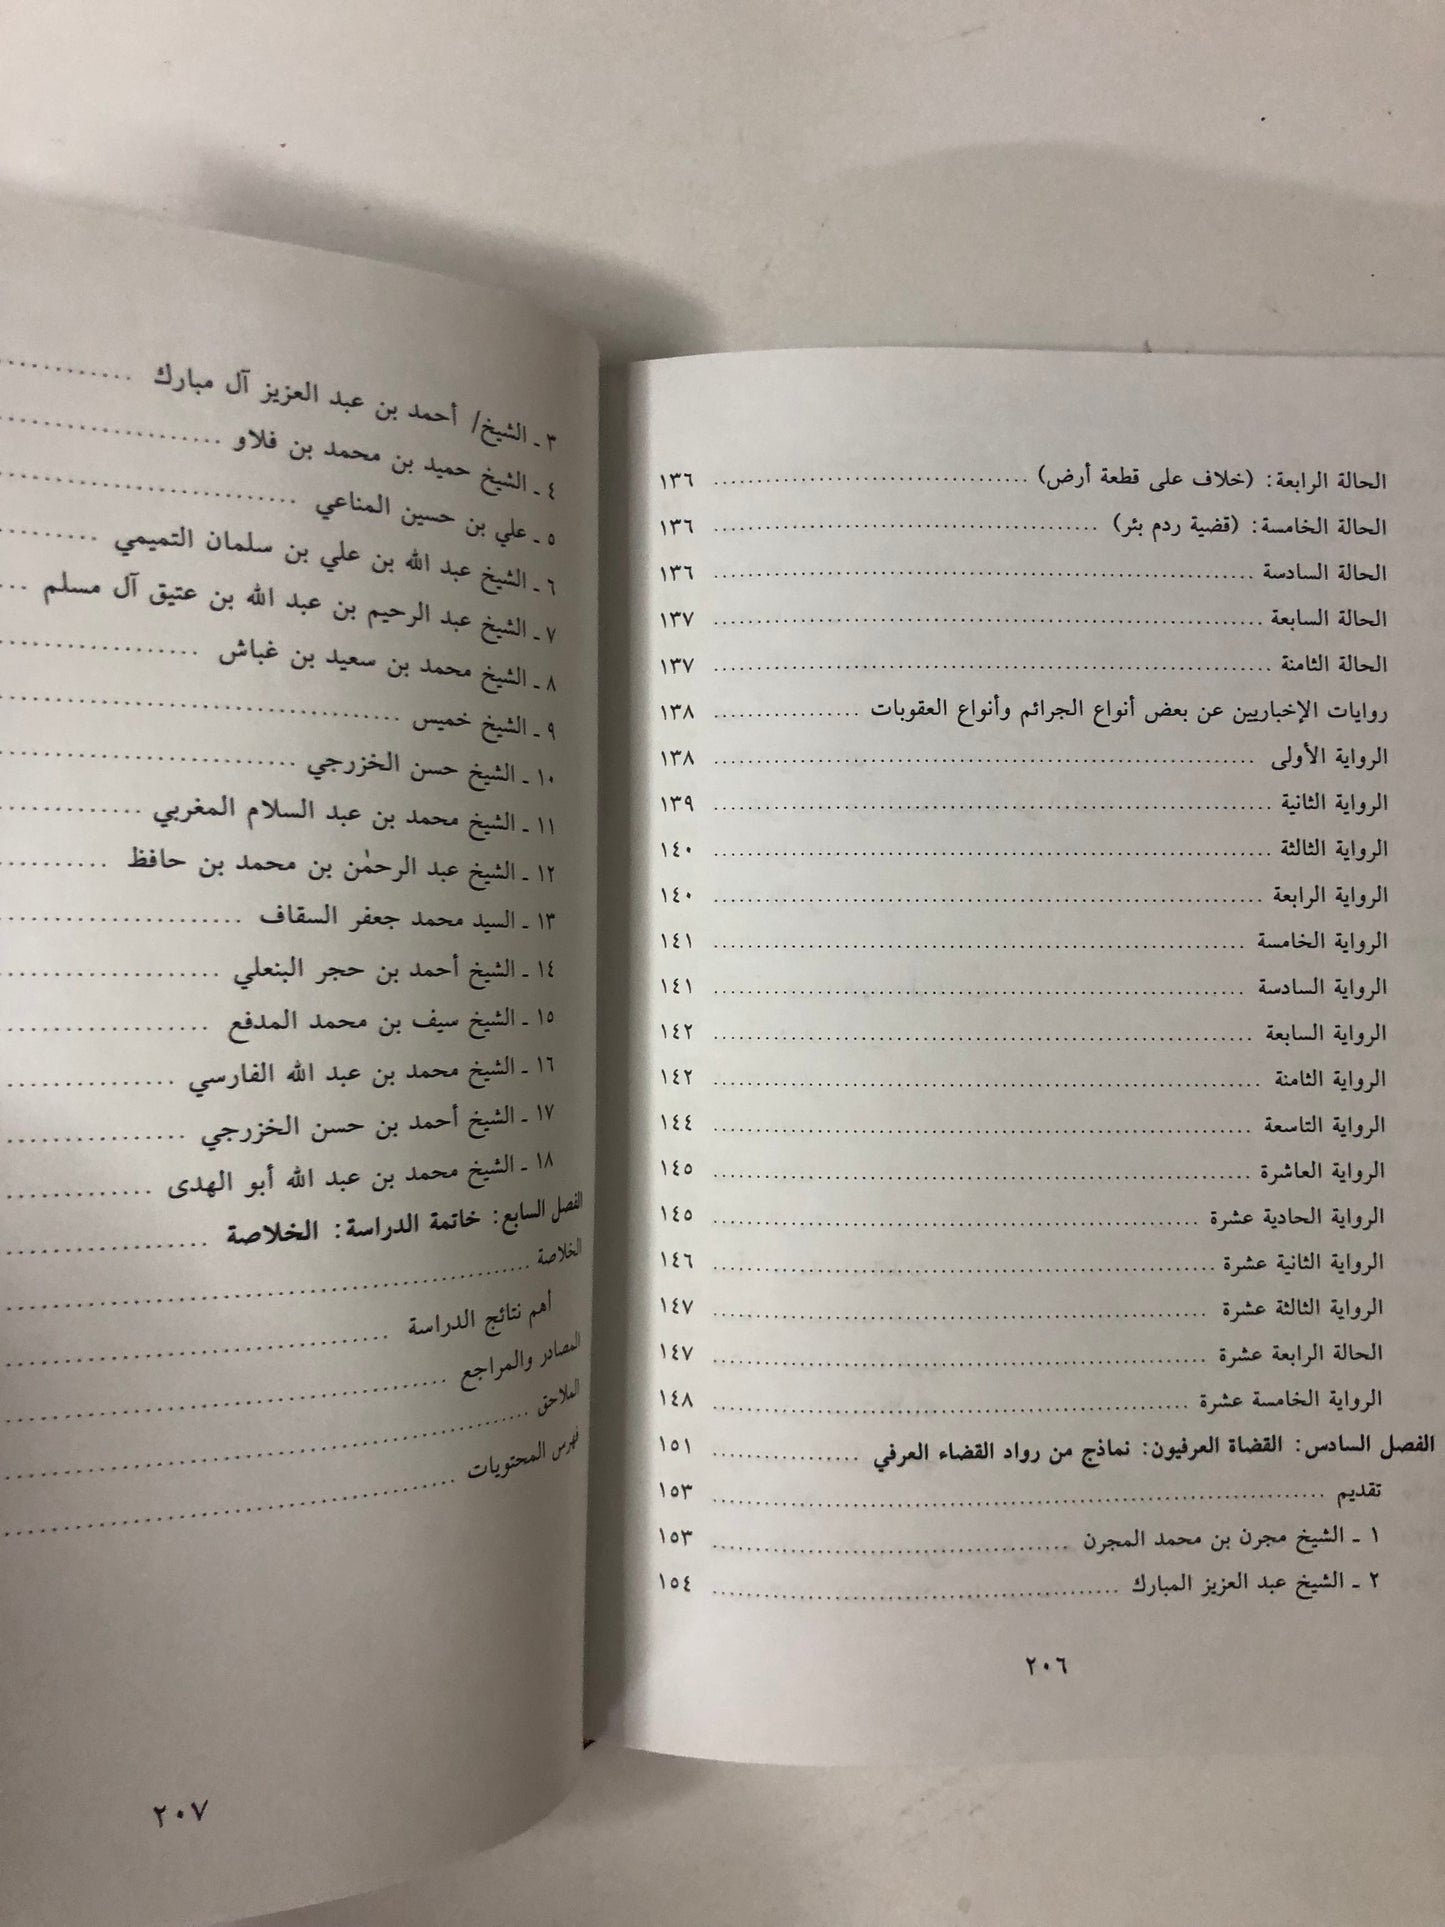 الحالة الرابعة: (خلاف على قطعة أرض) ..................................... ١٣٦
الحالة الخامسة: (قضية ردم بئر) ............................................. ١٣٦
الحالة السادسة ................................................................ ١٣٦
الحالة السابعة ................................................................. ١٣٧
الحالة الثامنة .................................................................. ١٣٧
روايات الإخباريين عن بعض أنواع الجرائم وأنواع العقوبات ................. ١٣٨
الرواية الأولى ................................................................ ١٣٨
الرواية الثانية .................................................................. ١٣٩
الرواية الثالثة .................................................................. ١٤٠
الرواية الرابعة ................................................................. ١٤٠
الرواية الخامسة ............................................................... ١٤١
الرواية السادسة ............................................................... ١٤١
الرواية السابعة ................................................................. ١٤٢
الرواية الثامنة ................................................................. ١٤٢
الرواية التاسعة ................................................................ ١٤٤
الرواية العاشرة ................................................................ ١٤٥
الرواية الحادية عشرة ......................................................... ١٤٥
الرواية الثانية عشرة ........................................................... ١٤٦
الرواية الثالثة عشرة .......................................................... ١٤٧
الحالة الرابعة عشرة .......................................................... ١٤٧
الرواية الخامسة عشرة ........................................................ ١٤٨
الفصل السادس: القضاة العرفيون: نماذج من رواد القضاء العرفي ................. ١٥١
تقديم ......................................................................... ١٥٣
١ ـ الشيخ مجرن بن محمد المجرن .......................................... ١٥٣
٢ ـ الشيخ عبد العزيز المبارك ................................................ ١٥٤
٢٠٦
٣ ـ الشيخ/ أحمد بن عبد العزيز آل مبارك ............
٤ ـ الشيخ حميد بن محمد بن فلاو ....................
٥ ـ علي بن حسين المناعي ...........................
٦ ـ الشيخ عبد الله بن علي بن سلمان التميمي .........
٧ ـ الشيخ عبد الرحيم بن عبد الله بن عتيق آل مسلم ...
٨ ـ الشيخ محمد بن سعيد بن غباش ..................
٩ ـ الشيخ خميس ....................................
١٠ ـ الشيخ حسن الخزرجي ..........................
١١ ـ الشيخ محمد بن عبد السلام المغربي .............
١٢ ـ الشيخ عبد الرحمٰن بن محمد بن حافظ ..........
١٣ ـ السيد محمد جعفر السقاف ......................
١٤ ـ الشيخ أحمد بن حجر البنعلي ....................
١٥ ـ الشيخ سيف بن محمد المدفع ...................
١٦ ـ الشيخ محمد بن عبد الله الفارسي ................
١٧ ـ الشيخ أحمد بن حسن الخزرجي ................
١٨ ـ الشيخ محمد بن عبد الله أبو الهدى .............
الفصل السابع: خاتمة الدراسة: الخلاصة ..................
الخلاصة .............................................
أهم نتائج الدراسة ...................................
المصادر والمراجع ......................................
الملاحق ..............................................
فهرس المحتويات ......................................
٢٠٧